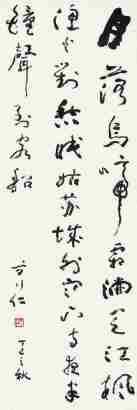 月落烏啼霜滿天江楓
漁火對愁眠姑蘇城外寒山寺夜半
鐘聲到客船